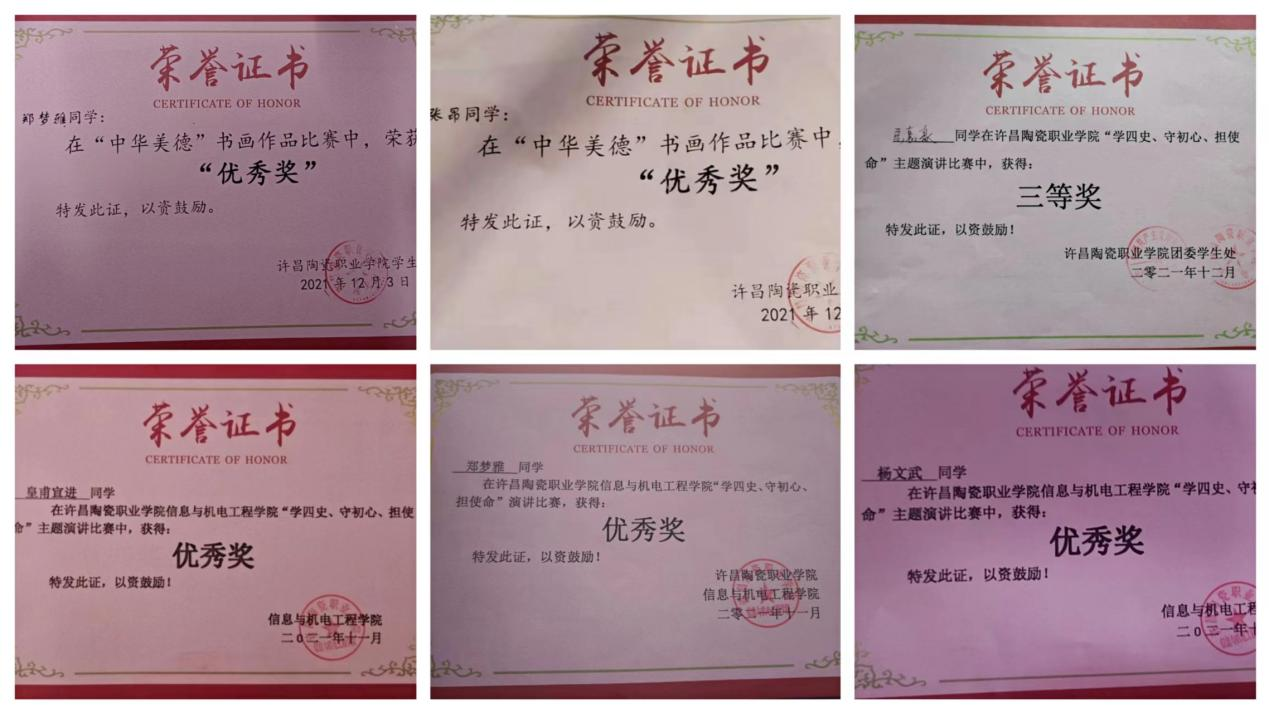 荣誉证书
CERTIFICATE OF HONOR
郑梦雅同学：
在“中华美德”书画作品比赛中，荣获
“优秀奖”
特发此证，以资鼓励。
许昌陶瓷职业学院学生
2021年12月3日
荣誉证书
CERTIFICATE OF HONOR
张昂同学：
在“中华美德”书画作品比赛中，
“优秀奖”
特发此证，以资鼓励。
许昌陶瓷职业
2021年12
荣誉证书
CERTIFICATE OF HONOR
同学在许昌陶瓷职业学院“学四史、守初心、担使
命”主题演讲比赛中，获得：
三等奖
特发此证，以资鼓励！
许昌陶瓷职业学院团委学生处
二零二一年十二月
荣誉证书
CERTIFICATE OF HONOR
皇甫宜进 同学
在许昌陶瓷职业学院信息与机电工程学院“学四史、守初心、担使
命”主题演讲比赛中，获得：
优秀奖
特发此证，以资鼓励！
信息与机电工程学院
二0二一年十一月
荣誉证书
CERTIFICATE OF HONOR
郑梦雅 同学
在许昌陶瓷职业学院信息与机电工程学院“学四史、守初心、
担使命”演讲比赛，获得：
优秀奖
特发此证，以资鼓励！
许昌陶瓷职业学院
信息与机电工程学院
二零二一年十一月
荣誉证书
CERTIFICATE OF HONOR
杨文武 同学
在许昌陶瓷职业学院信息与机电工程学院“学四史、守初
命”主题演讲比赛中，获得：
优秀奖
特发此证，以资鼓励！
信息与机电工程
二0二一年十